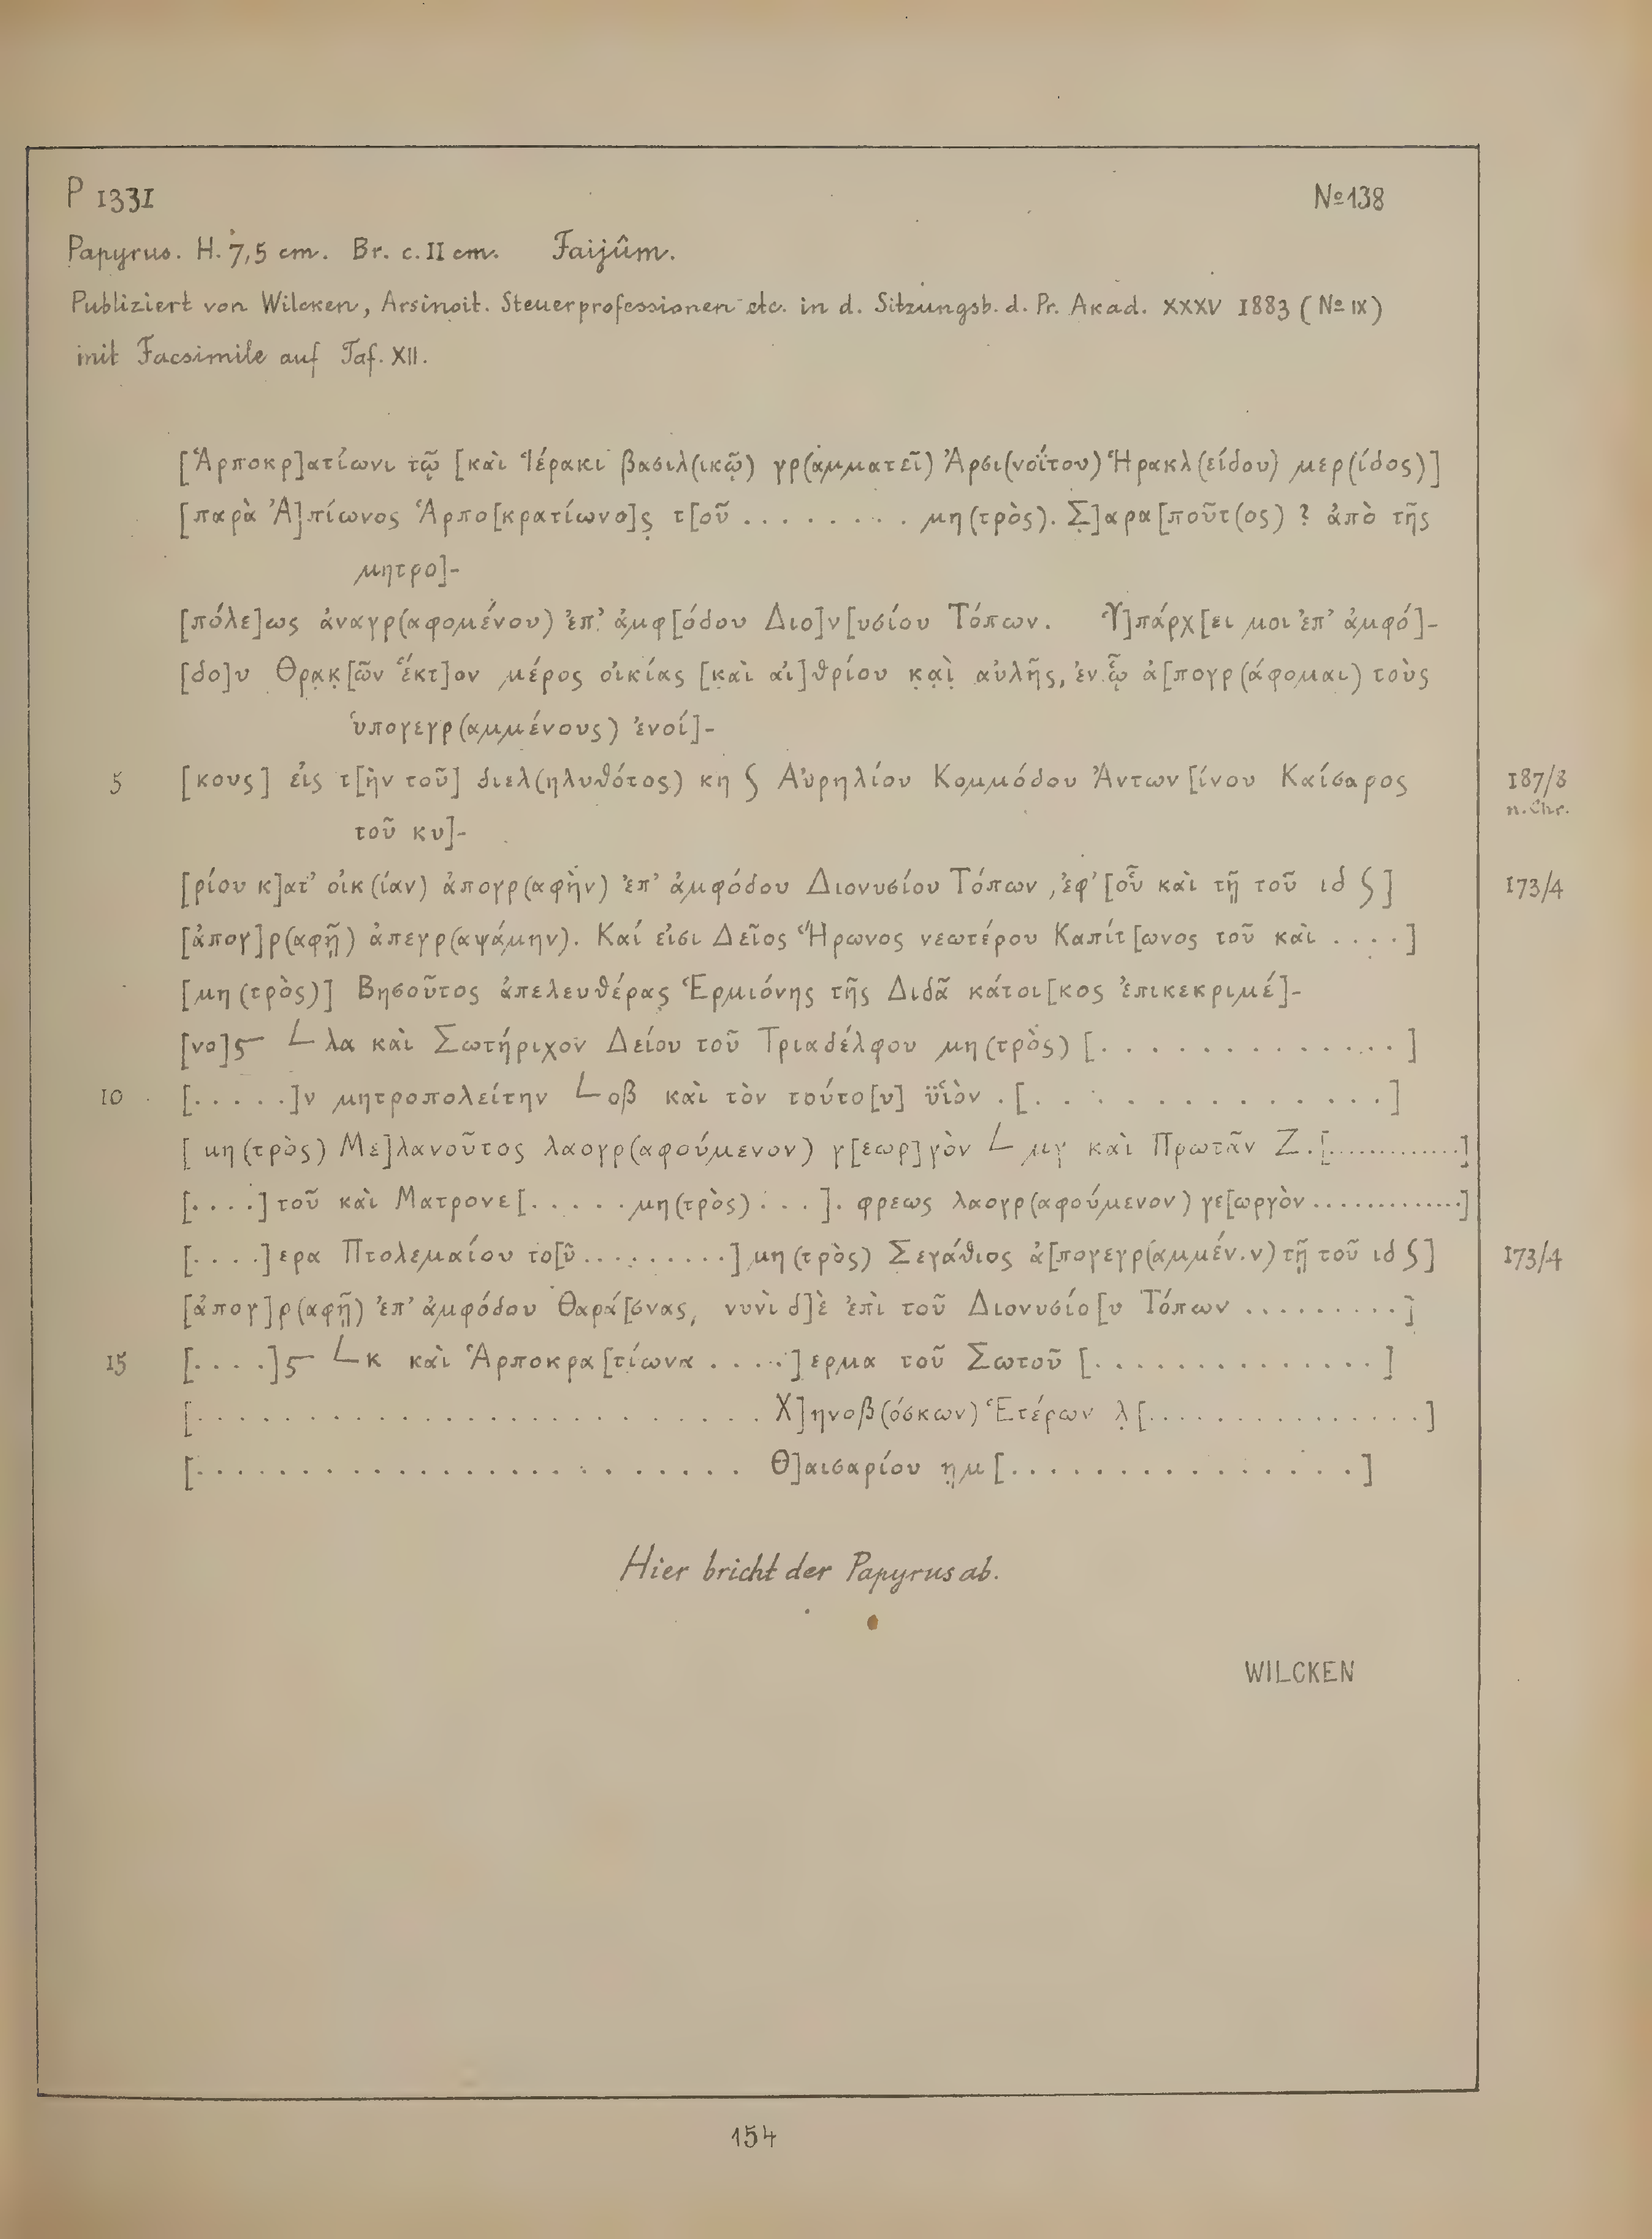 P 1331 № 138
Papyrus. H. 7,5 cm. Br. c. 11 cm. Faijûm.
Publiziert von Wilcken, Arsinoit. Steuerprofessionen etc. in d. Sitzungsb. d. Pr. Akad. XXXV 1883 (№ IX)
mit Facsimile auf Taf. XII.
[Ἁρποκρ]ατίωνι τῷ [καὶ Ἱέρακι βασιλ(ικῷ) γρ(αμματεῖ) Ἀρσι(νοΐτου) Ἡρακλ(είδου) μερ(ίδος)]
[παρὰ Ἀ]πίωνος Ἁρπο[κρατίωνο]ς̣ τ[οῦ ........ μη(τρὸς). Σ̣]αρα[ποῦτ(ος) ? ἀπὸ τῆς
μητρο]-
[πόλε]ως ἀναγρ(αφομένου) ἐπ' ἀμφ[όδου Διο]ν[υσίου Τόπων. Ὑ]πάρχ[ει μοι ἐπ' ἀμφό]-
[δο]υ Θρ̣α̣κ̣[ῶν ἕκτ]ον μέρος οἰκίας [καὶ αἰ]θρίου κ̣α̣ὶ̣ αὐλῆς, ἐν ᾧ̣ ἀ[πογρ(άφομαι) τοὺς
ὑπογεγρ(αμμένους) ἐνοί]-
5 [κους] εἰς τ[ὴν τοῦ] διελ(ηλυθότος) κη ϛ Αὐρηλίου Κομμόδου Ἀντων[ίνου Καίσαρος 187/8
n. Chr.
τοῦ κυ]-
[ρίου κ]ατ' οἰκ(ίαν) ἀπογρ(αφὴν) ἐπ' ἀμφόδου Διονυσίου Τόπων, ἐφ' [οὗ καὶ τῇ τοῦ ιδ ϛ] 173/4
[ἀπογ]ρ(αφῇ) ἀπεγρ(αψάμην). Καί εἰσι Δεῖος Ἥρωνος νεωτέρου Καπίτ[ωνος τοῦ καὶ ....]
[μη(τρὸς)] Βησοῦτος ἀπελευθέρας Ἑρμιόνης τῆς Διδᾶ κάτοι[κος ἐπικεκριμέ]-
[νο]ς L λα καὶ Σωτήριχον Δείου τοῦ Τριαδέλφου μη(τρὸς) [.............]
10 [.....]ν μητροπολείτην L οβ καὶ τὸν τούτο[υ] ϋἱὸν .[..............]
[μη(τρὸς) Με]λανοῦτος λαογρ(αφούμενον) γ[εωρ]γὸν L μγ καὶ Πρωτᾶν Ζ.[.............]
[....] τοῦ καὶ Ματρονε[.....μη(τρὸς)...]. φρεως λαογρ(αφούμενον) γε[ωργὸν .............]
[....]ερα Πτολεμαίου το[ῦ.........] μη(τρὸς) Σεγάθιος ἀ[πογεγρ(αμμέν.ν) τῇ τοῦ ιδ ϛ] 173/4
[ἀπογ]ρ(αφῇ) ἐπ' ἀμφόδου Θαρά[σνας, νυνὶ δ]ὲ ἐπὶ τοῦ Διονυσίο[υ Τόπων .........]
15 [....]ς L κ καὶ Ἁρποκρα[τίωνα ....]ερμα τοῦ Σωτοῦ [..............]
[........................ Χ]ηνοβ(όσκων) Ἑτέρων λ̣[...............]
[........................ Θ]αισαρίου η̣μ[...............]
Hier bricht der Papyrus ab.
WILCKEN
154